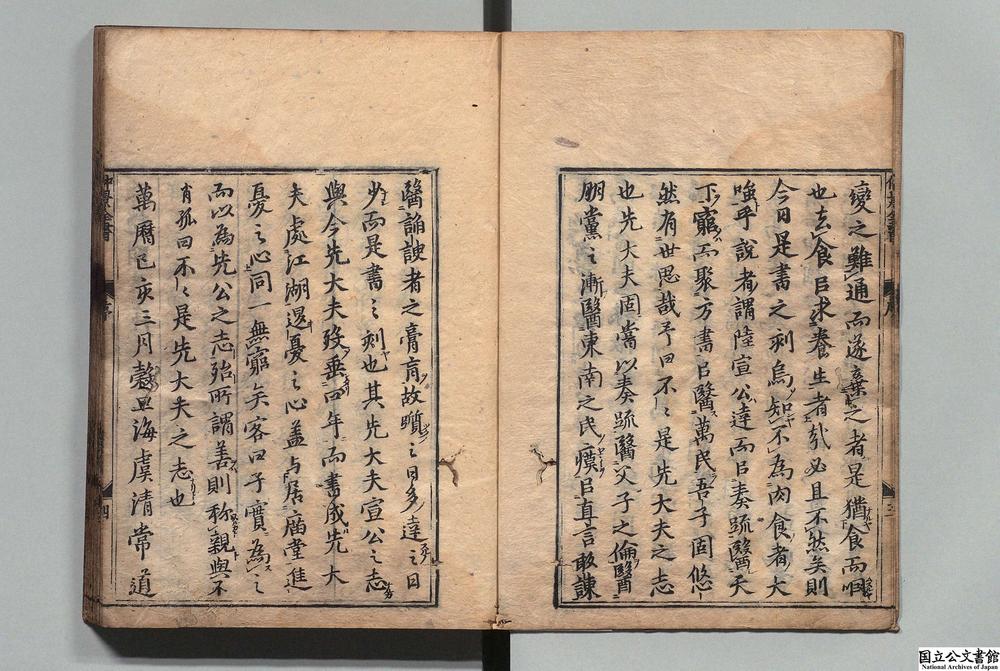 變之難通而遂棄之者是猶食而咽
也去食㠯求養生者㢤必且不然矣則
今日是書之刻烏知不為肉食者大
嗤乎說者謂陸宣公達而㠯奏疏醫天
下窮而聚方書㠯醫萬民吾子固悠
然有世思哉予曰不〻是先大夫之志
也先大夫固嘗以奏疏醫父子之倫醫
朋黨之漸醫東南之民瘼㠯直言敢諫
醫諭諛者之膏肓故躓之日多達之日
少而是書之刻也其先大夫宣公之志
與今先大夫歿垂四年而書成先大
夫處江湖退憂之心盖与居廟堂進
憂之心同一無窮矣客曰子實為之
而以為先公之志殆所謂善則称親與不
肖孤曰不〻是先大夫之志也
萬曆己亥三月穀旦海虞清常道
仲景全書
序
四
仲景全書
序
三
国立公文書館
National Archives of Japan